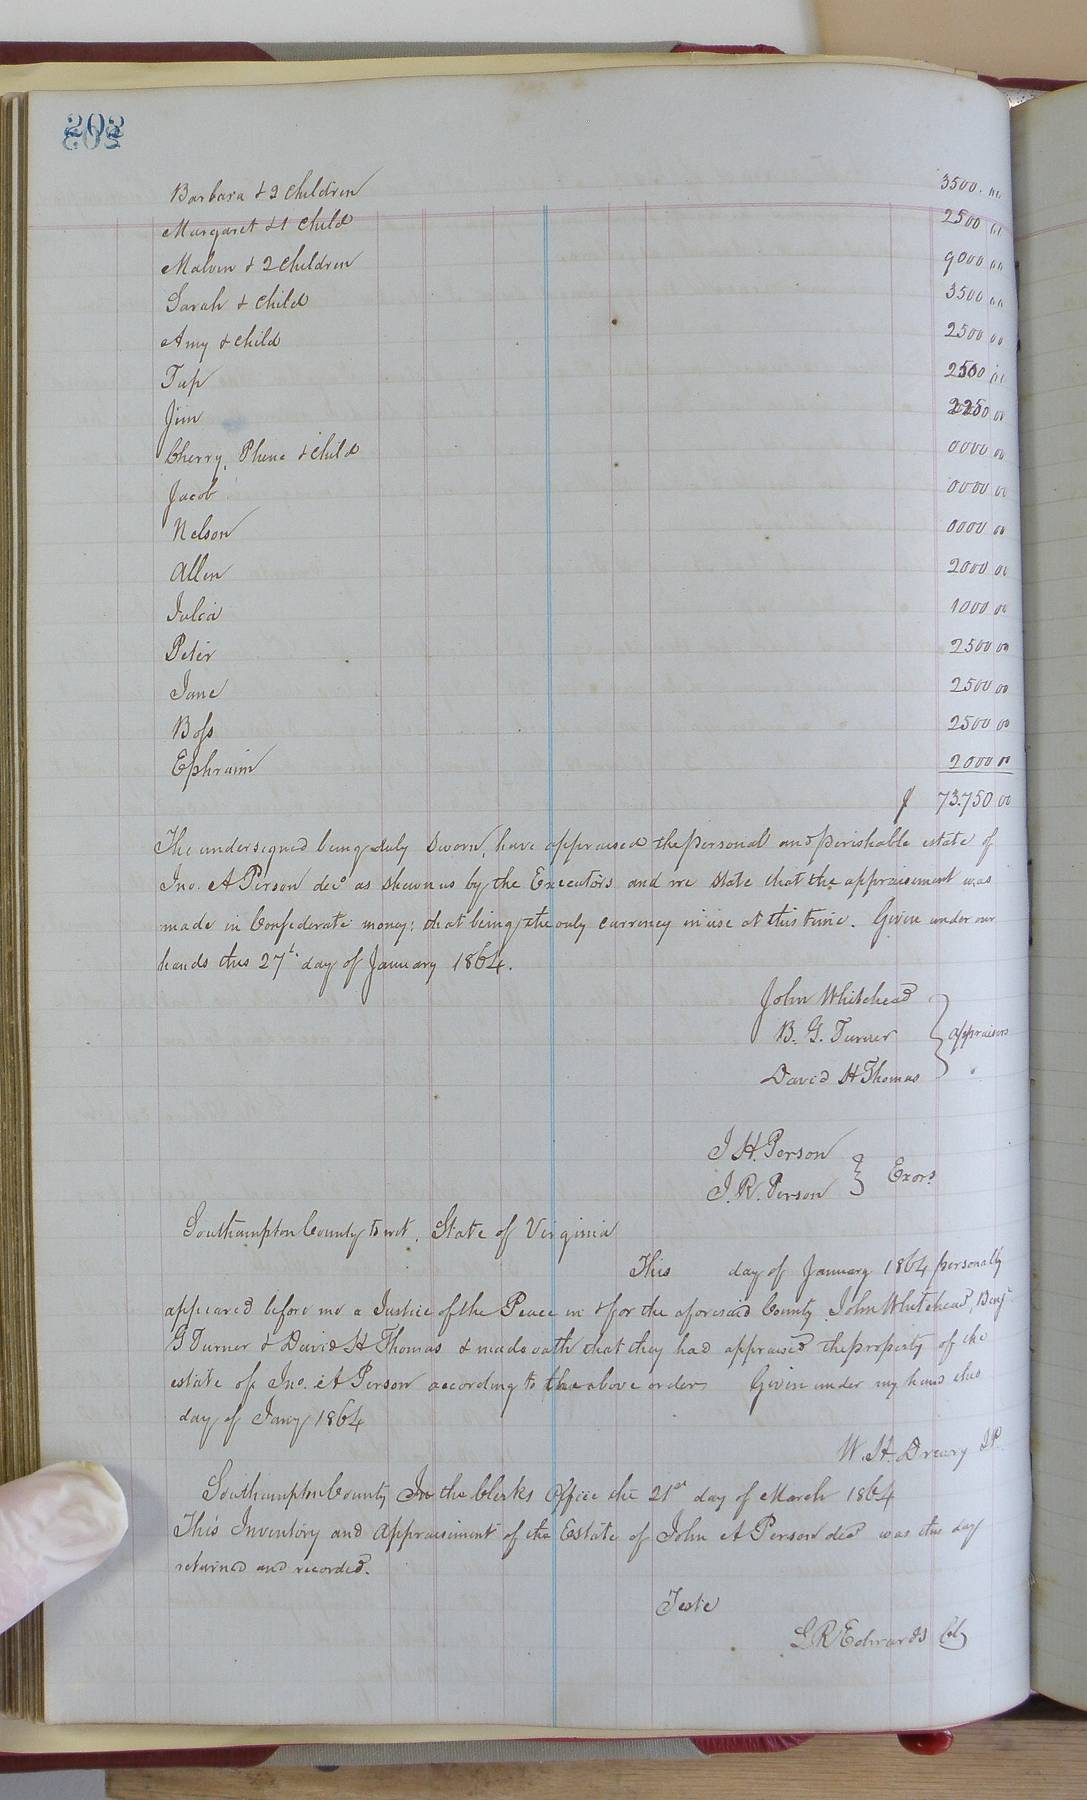 202
Barbara & 2 Children 3500.00
Margaret & 1 Child 2500 00
Malvin & 2 Children 9000 00
Sarah & Child 3500 00
Amy & Child 2500 00
Tap 2500 00
Jim 2250 00
Cherry, Phene & Child 0000 00
Jacob 0000 00
Nelson 0000 00
Allen 2000 00
Julia 1000 00
Peter 2500 00
Jane 2500 00
Boss 2500 00
Ephraim 2000 00
$ 73.750 00
The undersigned being duly sworn, have appraised the personal and perishable estate of
Jno. A Person decd as shewn us by the Executors and we state that the appraisement was
made in Confederate money; that being the only currency in use at this time. Given under our
hands this 27th day of January 1864.
John Whitehead
B. G. Turner } appraisers
David H Thomas
J. H. Person
J. R. Person } Exors
Southampton County to wit, State of Virginia
This day of January 1864 personally
appeared before me a Justice of the Peace in & for the aforesaid County John Whitehead, Benj
G Turner & David H Thomas & made oath that they had appraised the property of the
estate of Jno. A Person according to the above order Given under my hand this
day of Jany 1864
W. H. Dreary J.P.
Southampton County In the Clerks Office the 21st day of March 1864
This Inventory and Appraisement of the Estate of John A Person decd was this day
returned and recorded.
Teste
L R Edwards Clk